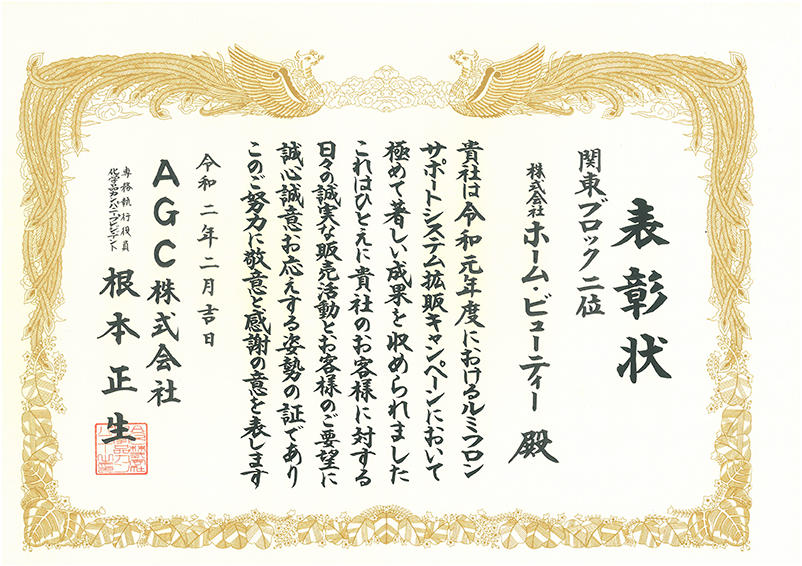 表彰状
関東ブロック二位
株式会社 ホーム・ビューティー 殿
貴社は令和元年度におけるルミフロン
サポートシステム拡販キャンペーンにおいて
極めて著しい成果を収められました
これはひとえに貴社のお客様に対する
日々の誠実な販売活動とお客様のご要望に
誠心誠意お応えする姿勢の証であり
このご努力に敬意と感謝の意を表します
令和二年二月吉日
AGC株式会社
専務執行役員
化学品カンパニープレジデント
根本正生